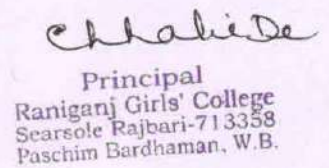 Chhabi De
Principal
Raniganj Girls' College
Searsole Rajbari-713358
Paschim Bardhaman, W.B.